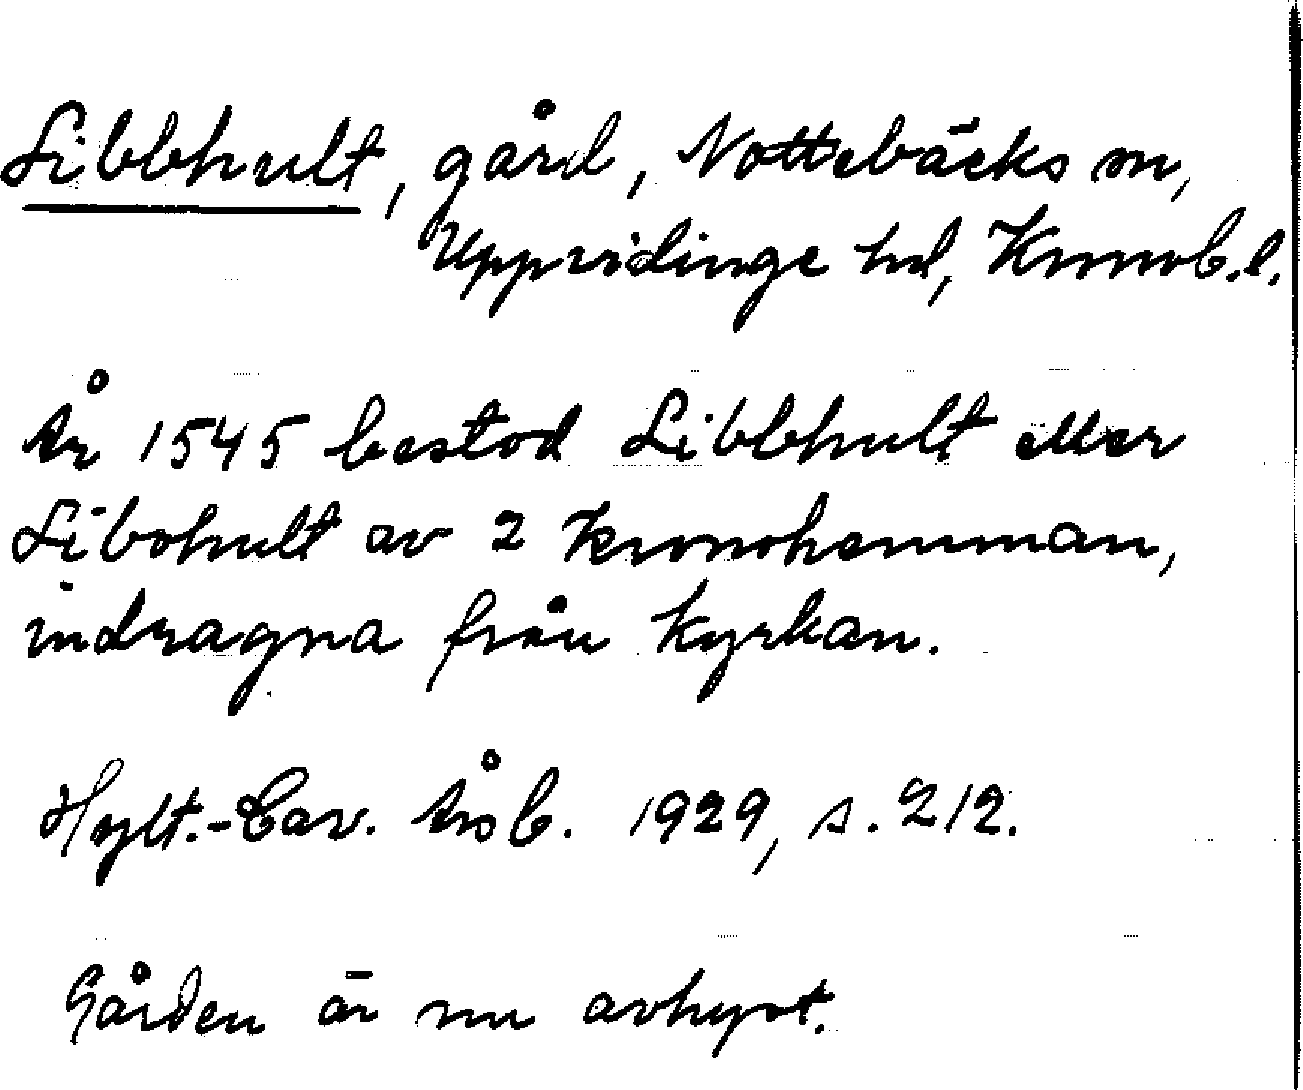 Libbhult, gård, Nottebäcks sn,
Uppvidinge hd, Kronob.l.
År 1545 bestod Libbhult eller
Libohult av 2 kronohemman,
indragna från kyrkan.
Hylt.-Cav. Årsb. 1929, s. 212.
Gården är nu avhyst.